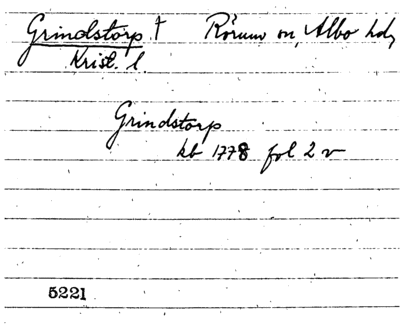 Grindstorp † Rörum sn, Albo hd,
Krist. l.
Grindstorp
kb 1778 fol 2 v
5221